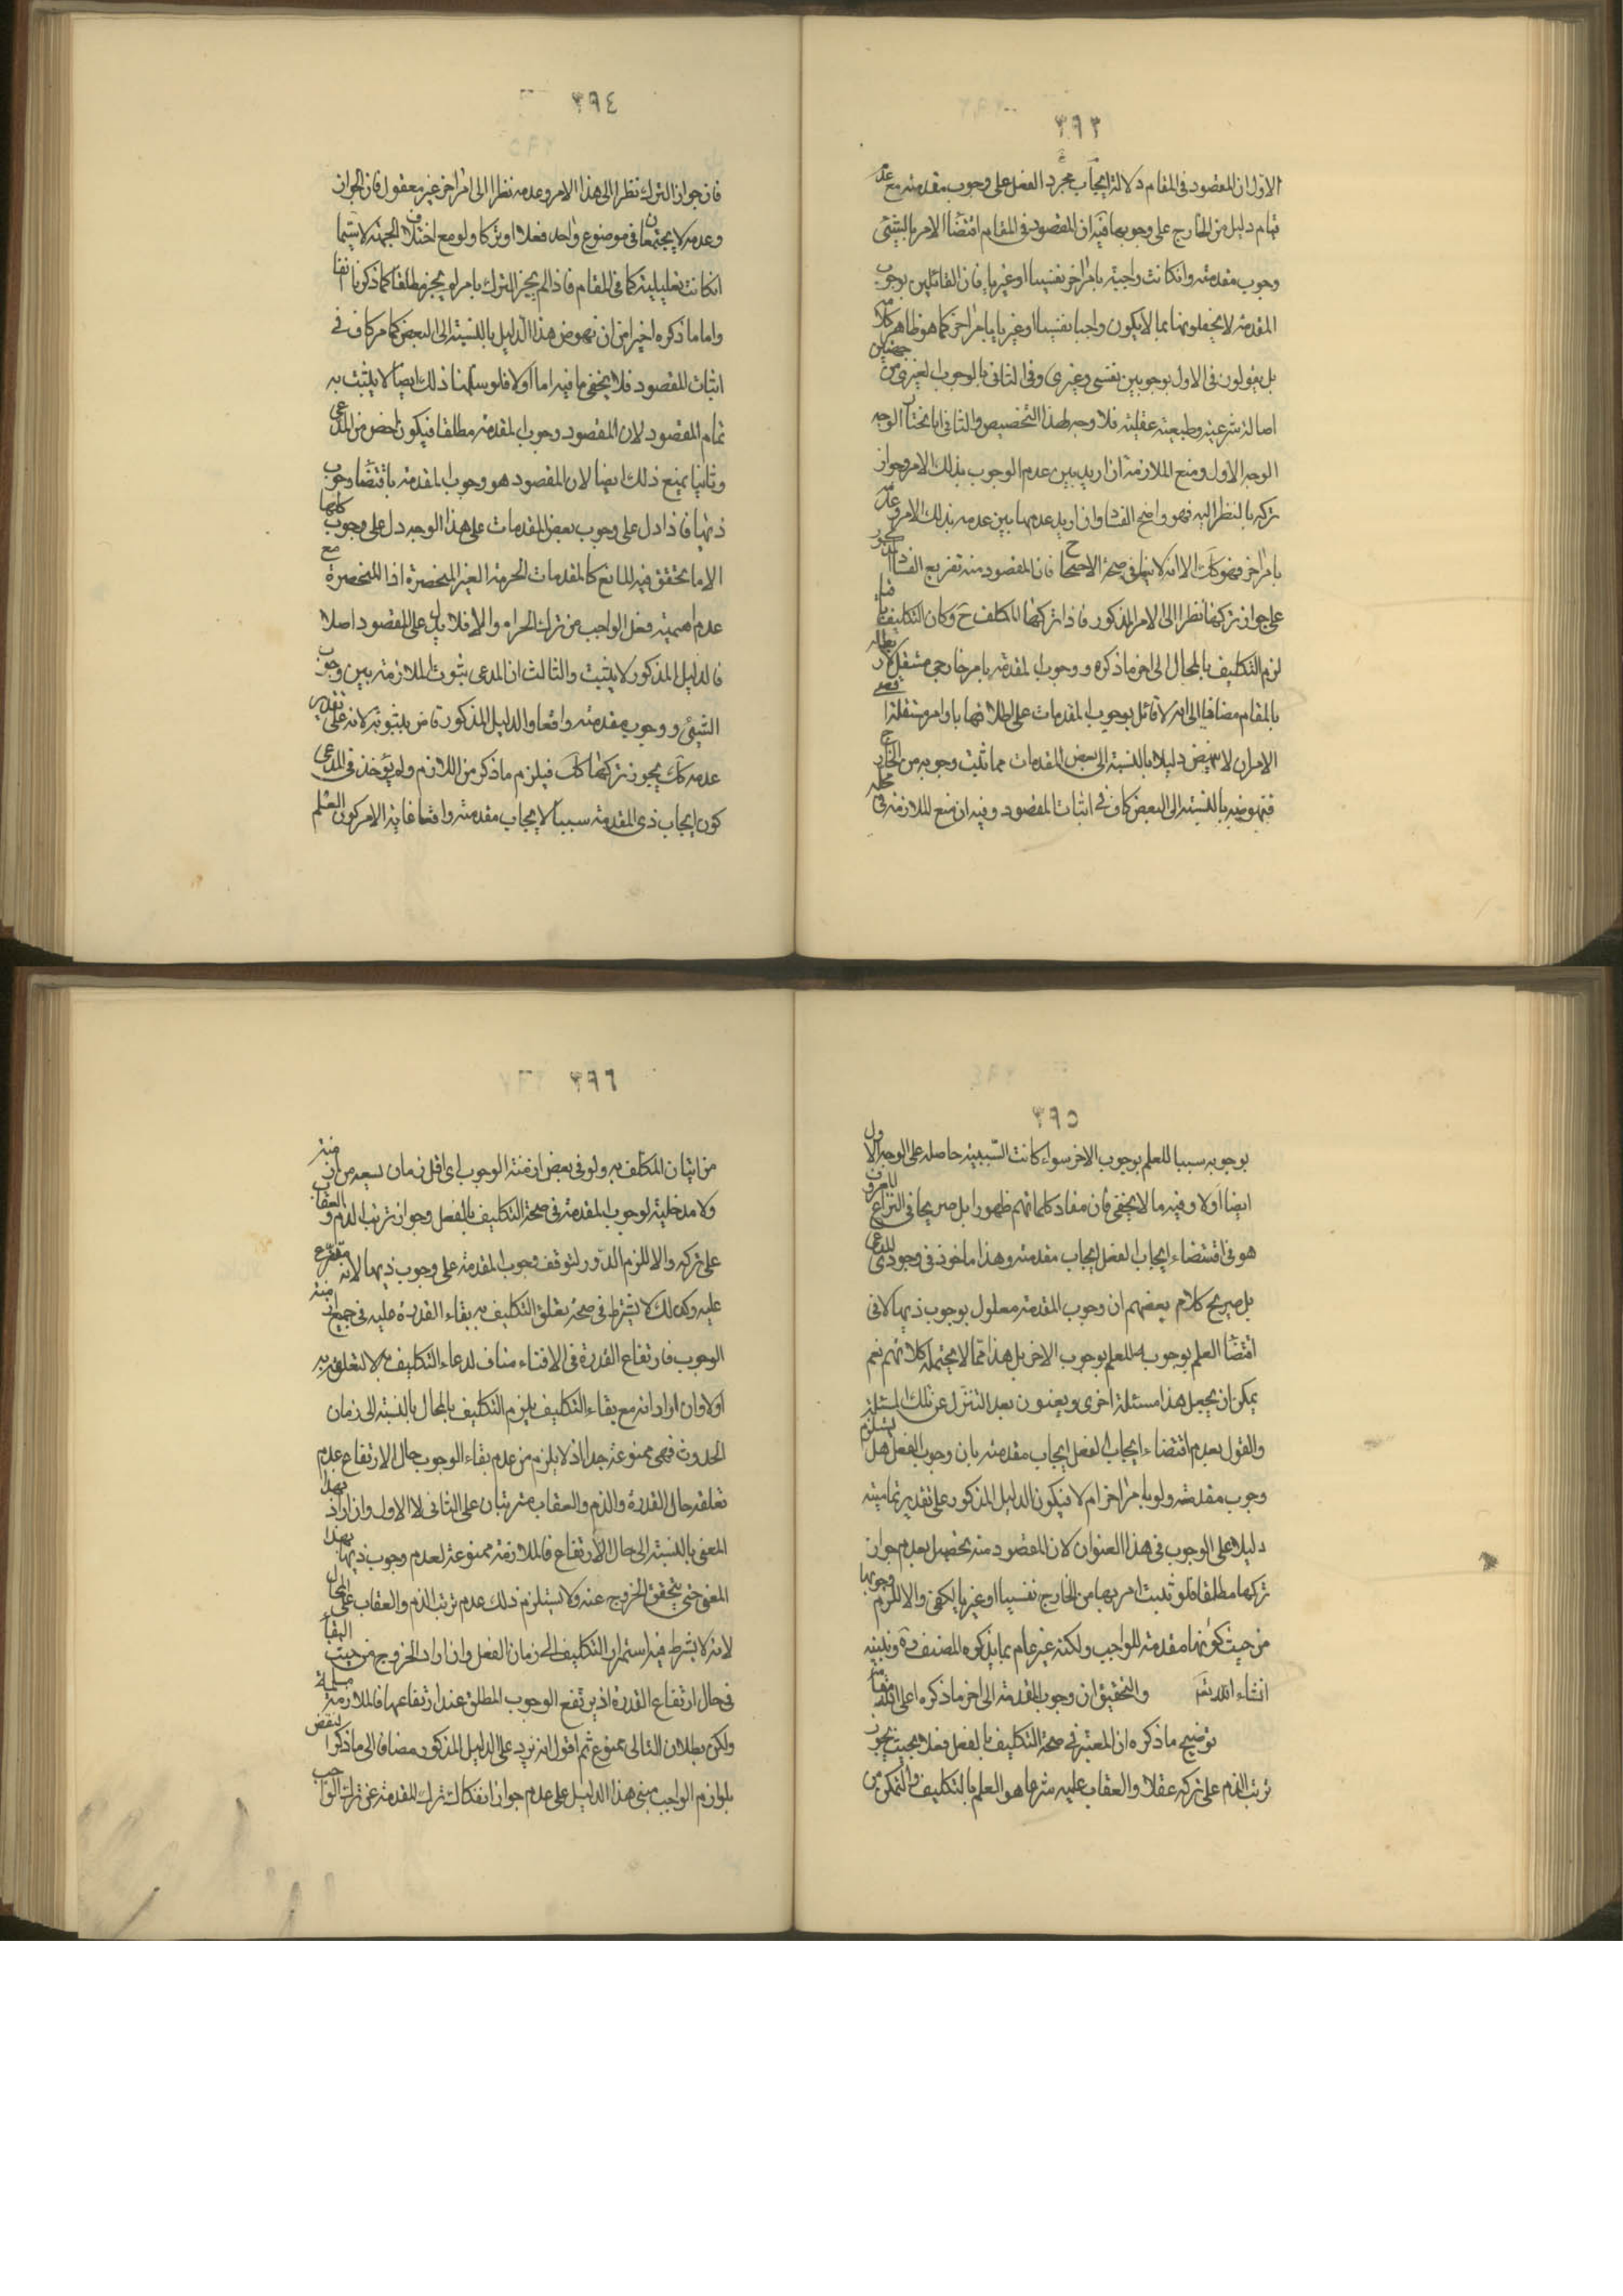 ٣٩٣
الاول ان المقصود فى المقام دلالة ايجاب مجرد الفعل على وجوب مقدمته مع عدم
قيام دليل من الخارج على وجوبها فيه ان المقصود فى المقام اقتضاء الامر بالشئ
وجوب مقدمته وانكانت واجبة بامر اخر نفسيا او غيريا فان القائلين بوجوب
المقدمة لا يخصونها بما لا يكون واجبا نفسيا او غيريا بامر اخر كما هو ظاهر كلامهم
بل يقولون فى الاول بوجوبين نفسى وغيرى وفى الثانى بالوجوب لغيرى من جهتين
اصالة شرعية وطبيعية عقلية فلا وجه لهذا التخصيص والثانى انا نختار الوجه
الوجه الاول ومنع الملازمة ان اريد بين عدم الوجوب بذلك الامر وجواز
تركه بالنظر اليه فهو واضح الفساد وان اريد عدمها بين عدمه بذلك الامر وعدمه
بامر اخر فهو كك الا انه لا ينافى صحة الاحتجاج فان المقصود منه تفريع الفساد
على جواز تركها نظرا الى الامر المذكور فاذا تركها المكلف ح وكان التكليف باقيا
لزم التكليف بالمحال الى اخر ماذكره ووجوب المقدمة بامر خارجى مستقل لا ربط له
بالمقام مضافا الى انه لا قائل بوجوب المقدمات على اطلاقها باوامر مستقلة
الامران لا ينهض دليلا بالنسبة الى بعض المقدمات مما ثبت وجوبه من الخارج
فنهوضه بالنسبة الى البعض كاف فى اثبات المقصود وفيه ان منع الملازمة فى محله
٣٩٤
فان جواز الترك نظرا الى هذا الامر وعدمه نظرا الى امر اخر غير معقول فان الجواز
وعدمه لا يجتمعان فى موضوع واحد فعلا او تركا ولو مع اختلاف الجهة لا سيما
انكانت تعليلية كما فى المقام فاذا لم يجز الترك بامر لم يجز مطلقا كما ذكرنا انفا
واما ما ذكره اخيرا من ان نهوض هذا الدليل بالنسبة الى البعض كما مر كاف فى
اثبات المقصود فلا يخفى ما فيه اما اولا فلو سلمنا ذلك ايضا لا يثبت به
تمام المقصود لان المقصود وجوب المقدمة مطلقا فيكون اخص من المدعى
وثانيا نمنع ذلك ايضا لان المقصود هو وجوب المقدمة باقتضاء وجوب
ذيها فاذا دل على وجوب بعض المقدمات على هذا الوجه دل على وجوب كلها
الا ما تحقق فيه المانع كالمقدمات المحرمة الغير المنحصرة اذا المنحصرة مع
عدم اهمية فعل الواجب من ترك الحرام والا فلا يدل على المقصود اصلا
فالدليل المذكور لا يثبت والثالث ان المدعى ثبوت الملازمة بين وجوب
الشئ ووجوب مقدمته واقعا والدليل المذكور قاض بثبوته لانه على تقدير
عدمه كك يجوز تركها كك فيلزم ماذكر من اللازم ولم يؤخذ فى المدعى
كون ايجاب ذى المقدمة سببا لايجاب مقدمته واقعا غاية الامر كون العلم
٣٩٥
بوجوبه سببا للعلم بوجوب الاخر سواء كانت السببية حاصلة على الوجه الاول
ايضا او لا وفيه ما لا يخفى فان مفاد كلماتهم ظهورا بل صريحا فى النزاع المعروف
هو فى اقتضاء ايجاب الفعل ايجاب مقدمته وهذا ماخوذ فى وجود المدعى
بل صريح كلام بعضهم ان وجوب المقدمة معلول بوجوب ذيها لا فى
اقتضاء العلم بوجوبه للعلم بوجوب الاخر بل هذا مما لا يحتمله كلاتهم نعم
يمكن ان يجعل هذا مسئلة اخرى ويعنون بعد التنزل عن تلك المسئلة
والقول بعدم اقتضاء ايجاب الفعل ايجاب مقدمته بان وجوب الفعل هل يستلزم
وجوب مقدمته ولو بامر اخر ام لا فيكون الدليل المذكور على تقدير تماميته
دليلا على الوجوب فى هذا العنوان لان المقصود منه تحصيل بعدم جواز
تركها مطلقا فلو ثبت امر بها من الخارج نفسيا او غيريا يكفى والا للزم وجوبها
من حيث كونها مقدمة للواجب ولكنه غير عام بما يذكره المصنف ره ونبينه
انشاء الله تعم والتحقيق ان وجوب المقدمة الى اخر ماذكره اعلى الله مقامه
توضيح ماذكره ان المعتبر فى صحة التكليف بالفعل فعلا بحيث يجوز
ترتب الذم على تركه عقلا والعقاب عليه شرعا هو العلم بالتكليف والتمكن من
٣٩٦
من اتيان المكلف به ولو فى بعض ازمنة الوجوب اى اقل زمان يسعه من ازمنته
ولا مدخلية لوجوب المقدمة فى صحة التكليف بالفعل وجواز ترتب الذم والعقاب
على تركه والا للزم الدور لتوقف وجوب المقدمة على وجوب ذيها لانه متفرع
عليه وكذلك لا يشترط فى صحة تعلق التكليف به بقاء القدرة عليه فى جميع ازمنة
الوجوب فارتفاع القدرة فى الاثناء مناف لدعاء التكليف به لا لتعلقه به
اولا وان اراد انه مع بقاء التكليف يلزم التكليف بالمحال بالنسبة الى زمان
الحدوث فهى ممنوعة جدا اذ لا يلزم من عدم بقاء الوجوب حال الارتفاع عدم
تعلقه حال القدرة والذم والعقاب مترتبان على الثانى لا الاول وان اراد بهذا
المعنى بالنسبة الى حال الارتفاع فالملازمة ممنوعة لعدم وجوب ذيها بهذا
المعنى حتى يتحقق الخروج عنه ولا يستلزم ذلك عدم ترتب الذم والعقاب على المحال
لانه لا يشترط فيه استمرار التكليف الى زمان الفعل وان اراد الخروج من حيث البقاء
فى حال ارتفاع القدرة اذ يرتفع الوجوب المطلق عند ارتفاعها فالملازمة مسلمة
ولكن بطلان التالى ممنوع ثم اقول انه يرد على الدليل المذكور مضافا الى ماذكر النقض
بلوازم الواجب مبنى هذا الدليل على عدم جواز انفكاك ترك المقدمة عن ترك الواجب